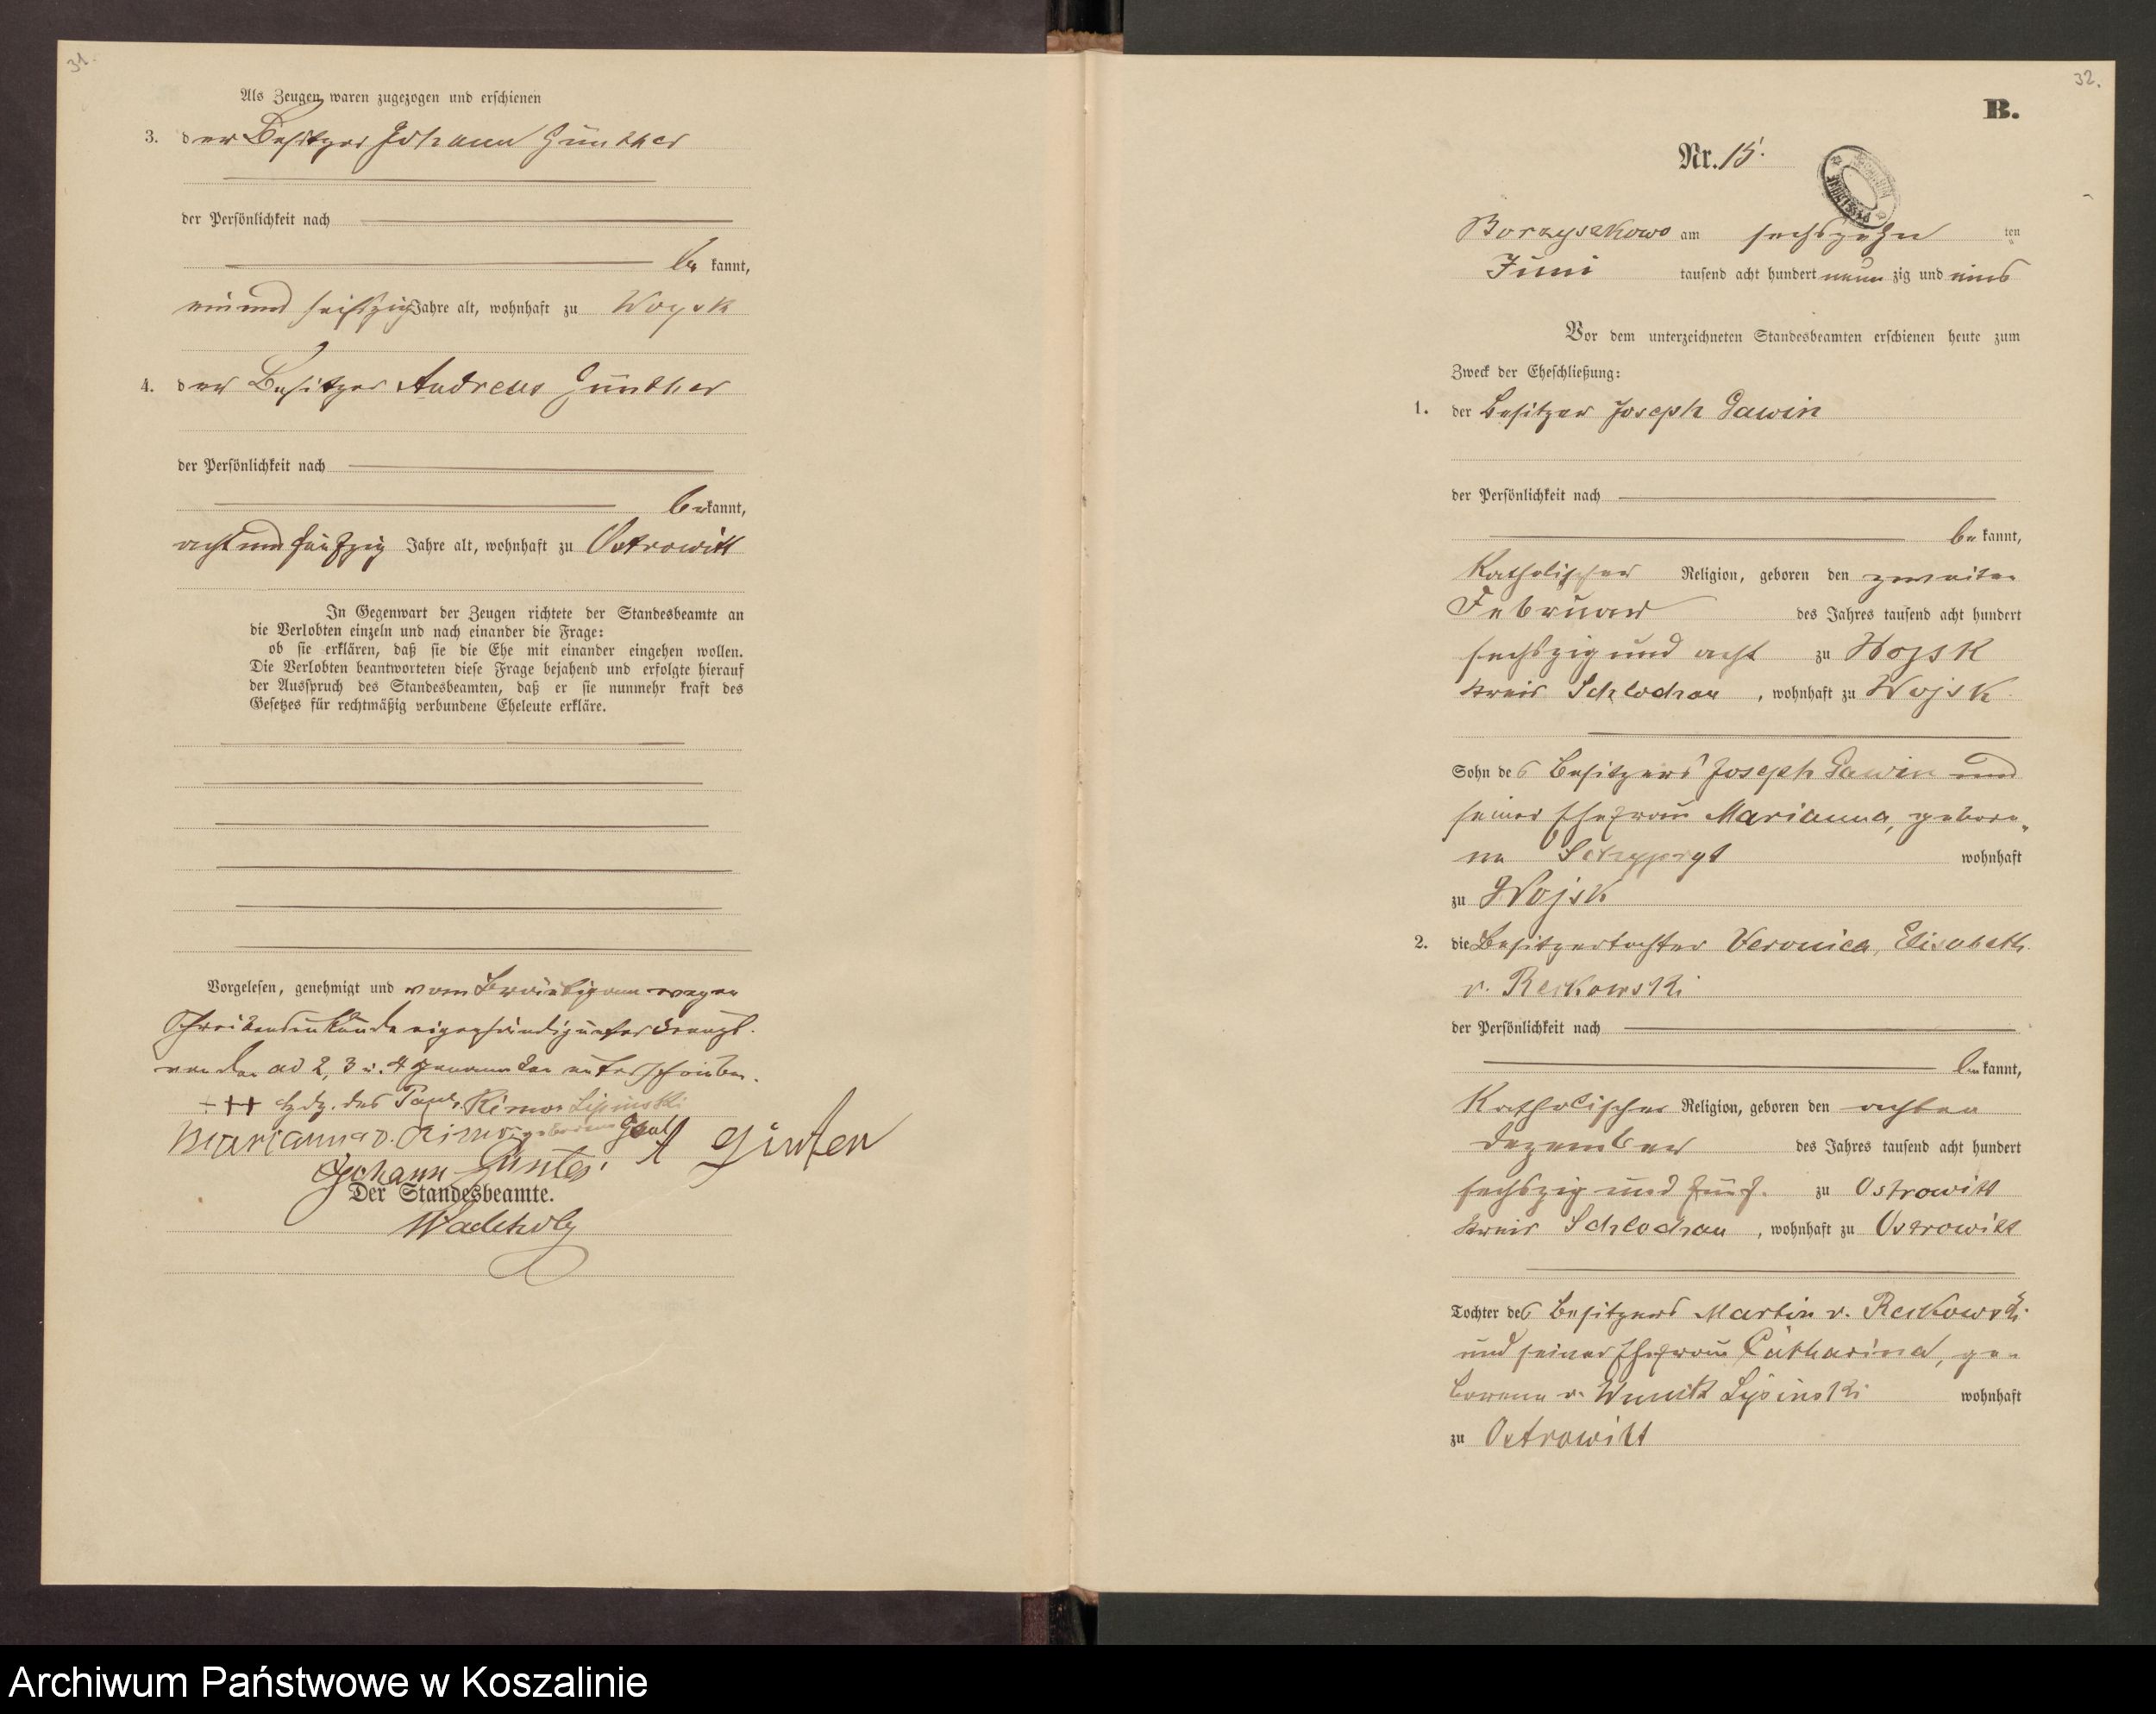 31.
Als Zeugen waren zugezogen und erschienen
3. der Besitzer Johann Günther
der Persönlichkeit nach
be kannt,
ein und sechszig Jahre alt, wohnhaft zu Woysk
4. der Besitzer Andreas Günther
der Persönlichkeit nach
be kannt,
acht und fünfzig Jahre alt, wohnhaft zu Ostrowitt
In Gegenwart der Zeugen richtete der Standesbeamte an
die Verlobten einzeln und nach einander die Frage:
ob sie erklären, daß sie die Ehe mit einander eingehen wollen.
Die Verlobten beantworteten diese Frage bejahend und erfolgte hierauf
der Ausspruch des Standesbeamten, daß er sie nunmehr kraft des
Gesetzes für rechtmäßig verbundene Eheleute erkläre.
Vorgelesen, genehmigt und vom Bräutigam wegen
Schreibensunkunde eigenhändig unterkreuzt.
von den ad 2, 3 u. 4 genannten unterschrieben.
+++ Hdz. des Paul v. Rimon Lipinski
Marianna v. Rimon geborene
Johann Günter A Günter
Der Standesbeamte.
32.
B.
Nr. 15.
Borzyszkowo am sechszehn ten
Juni tausend acht hundert neun zig und eins
Vor dem unterzeichneten Standesbeamten erschienen heute zum
Zweck der Eheschließung:
1. der Besitzer Joseph Gawin
der Persönlichkeit nach
be kannt,
Katholischer Religion, geboren den zweiten
Februar des Jahres tausend acht hundert
sechszig und acht zu Wojsk
Kreis Schlochau, wohnhaft zu Wojsk
Sohn des Besitzers Joseph Gawin und
seiner Ehefrau Marianna, gebore„
ne wohnhaft
zu Wojsk
2. die Besitzertochter Veronica, Elisabeth
v. Reikowski
der Persönlichkeit nach
be kannt,
Katholischer Religion, geboren den achten
Dezember des Jahres tausend acht hundert
sechszig und fünf. zu Ostrowitt
Kreis Schlochau, wohnhaft zu Ostrowitt
Tochter des Besitzers Martin v. Reikowski
und seiner Ehefrau Catharina, ge-
borene v. Wnuck Lipinski wohnhaft
zu Ostrowitt
Archiwum Państwowe w Koszalinie